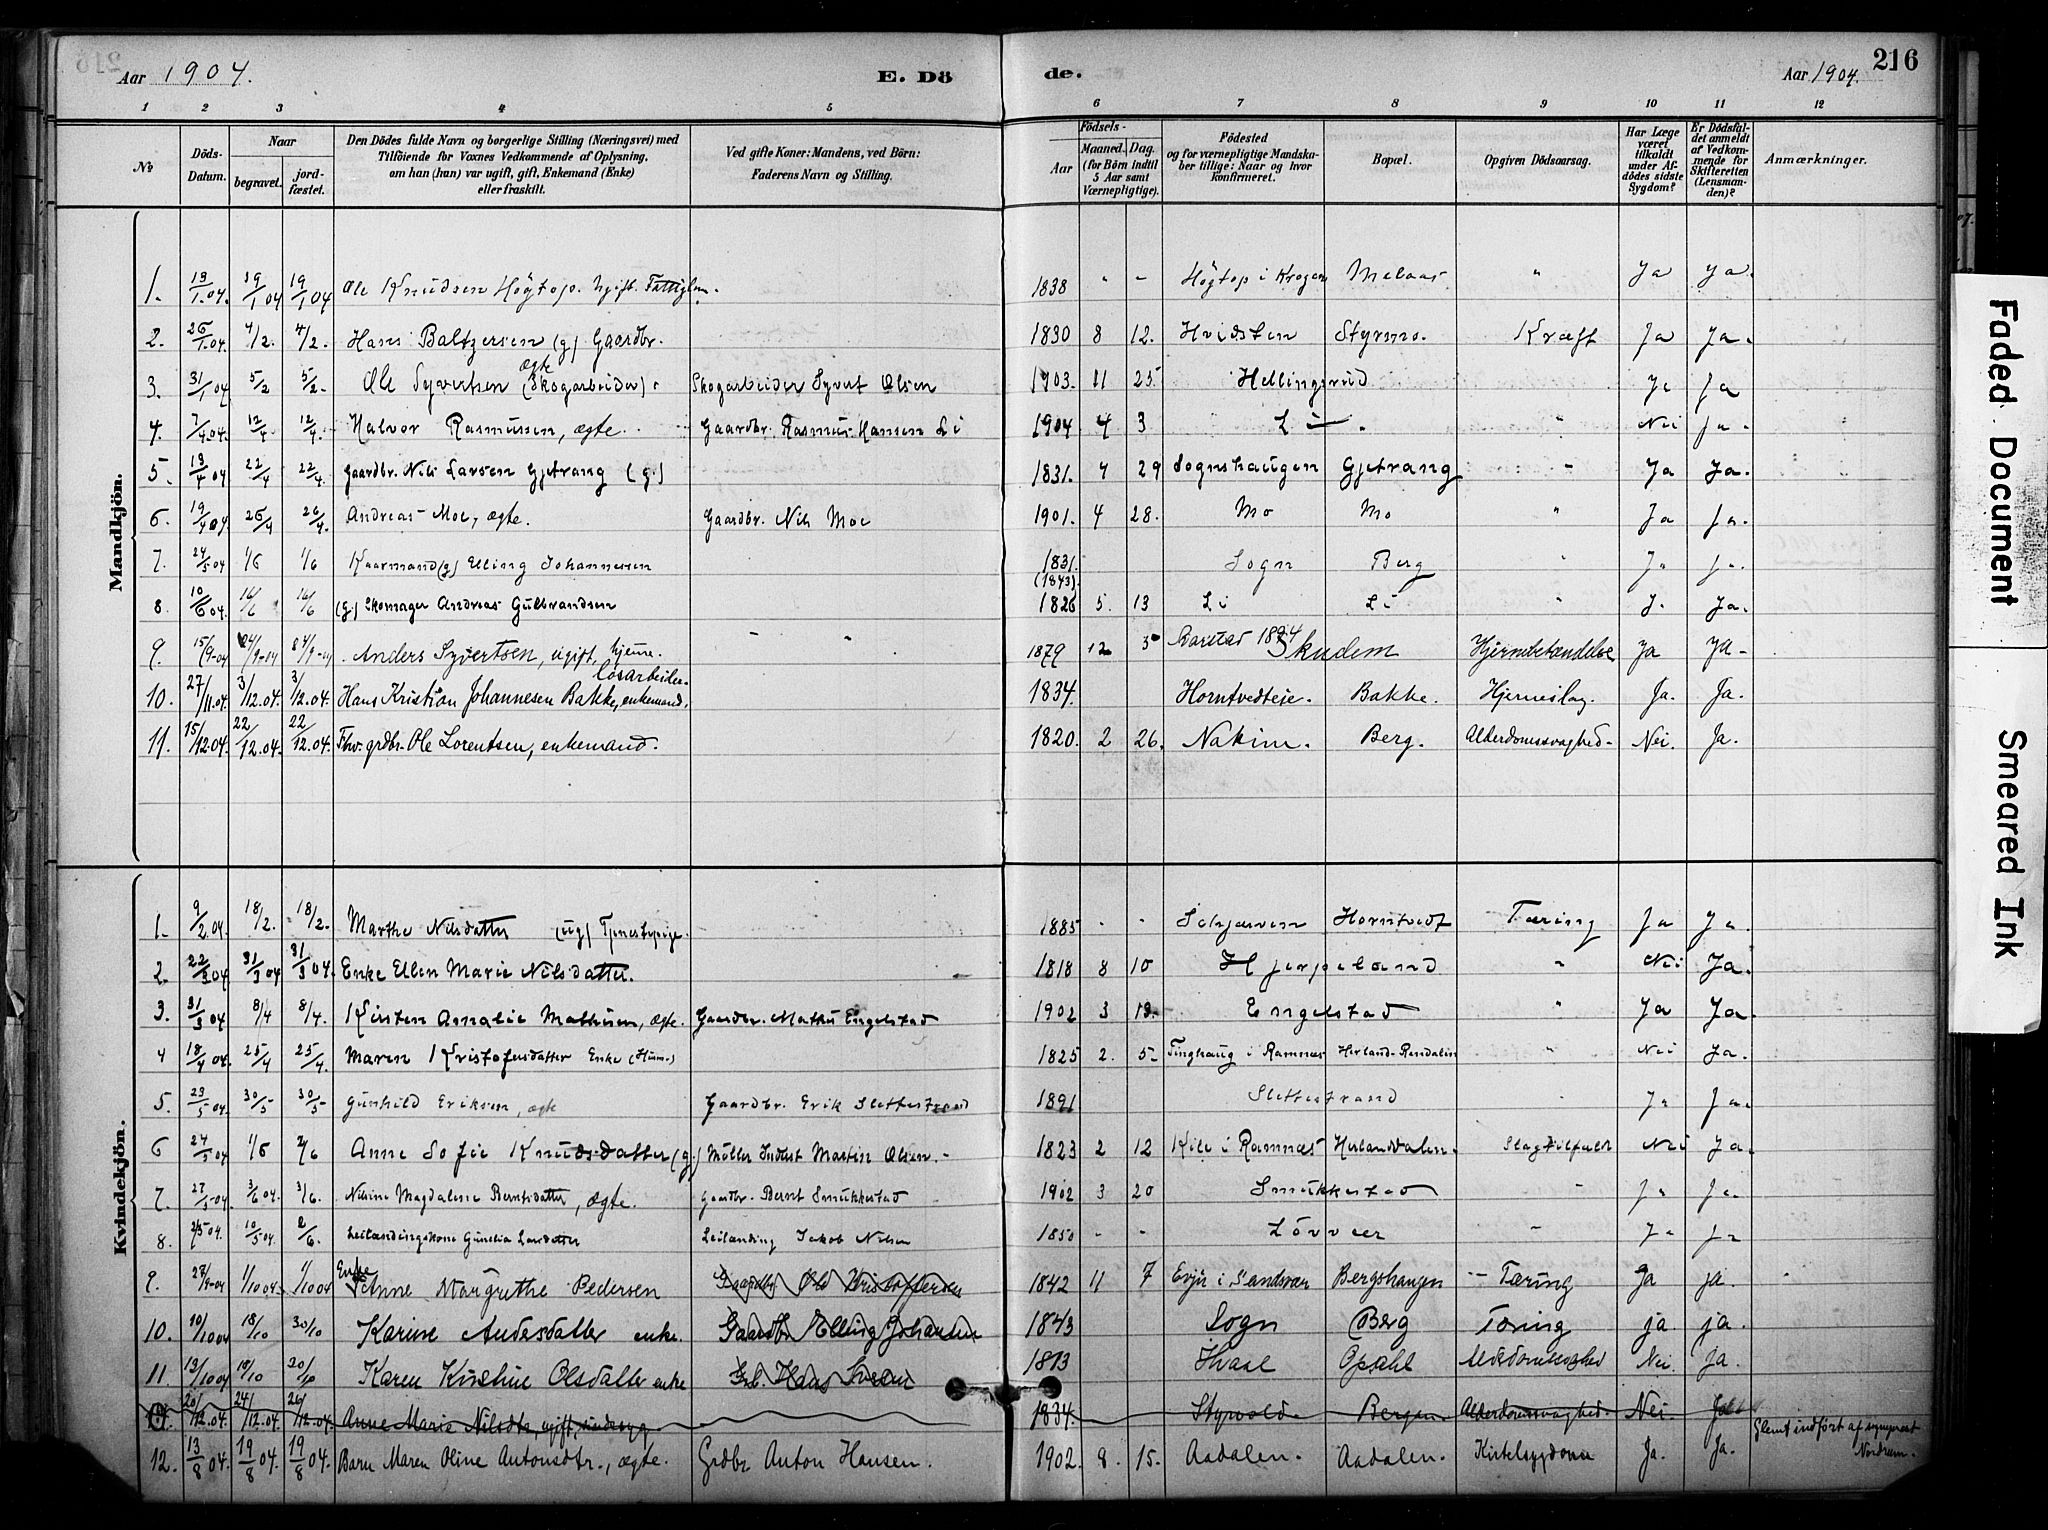 Aar 1904. E. Dö de. Aar 1904. 216
1 2 3 4 5 6 7 8 9 10 11 12
No Döds-Datum. Naar begravet. jord-fæstet. Den Dödes fulde Navn og borgerlige Stilling (Næringsvei) med Tilföiende for Voxnes Vedkommende af Oplysning, om han (hun) var ugift, gift, Enkemand (Enke) eller fraskilt. Ved gifte Koner: Mandens, ved Börn: Faderens Navn og Stilling. Födsels- Aar Maaned. Dag. (for Börn indtil 5 Aar samt Værnepligtige). Födested og for værnepligtige Mandska-ber tillige: Naar og hvor konfirmeret. Bopæl. Opgiven Dödsaarsag. Har Læge været tilkaldt under Af-dödes sidste Sygdom? Er Dödsfal-det anmeldt af Vedkom-mende for Skifteretten (Lensman-den)? Anmærkninger.
Mandkjön.
1. 13/1.04. 19/1 04 19/1 04 Ole Knudsen Högtop. Ugift. Fattiglem. 1838 " - Högtop i Krogen Melaas " Ja Ja.
2. 26/1.04. 4/2. 4/2. Hans Baltzersen (g) Gaardbr. 1830 8 12. Hvidsten Styrmo. Kræft Ja Ja.
3. 31/1 04 5/2 5/2. Ole Syvertsen ægte (Skogarbeider) Skogarbeider Syvert Olsen 1903. 11 25 Hellingsrud Ja Ja
4. 7/4.04. 12/4 12/4. Halvor Rasmussen, ægte. Gaardbr. Rasmus Hansen Li 1904 4 3 Li " Nei Ja.
5. 13/4 04 22/4 22/4. Gaardbr. Nils Larsen Gjetrang (g.) 1831. 4 29 Sognshaugen Gjetrang - Ja Ja.
6. 19/4 04 26/4 26/4. Andreas Moe, ægte. Gaardbr. Nils Moe 1901. 4 28. Mo Mo " Ja Ja.
7. 24/5 04 1/6 1/6 Kaarmand (g) Elling Johannesen 1831. (1843). Sogn Berg " Ja Ja.
8. 10/6 04. 16/6 16/6 (g.) Skomager Andreas Gulbrandsen 1826 5. 13 Li Li " Ja Ja.
9. 15/9-04 24/9-04 24/9-04 Anders Syvertsen, ugift, hjeme. - " 1879 12 5 1894 Skudem Hjernebetændelse Ja Ja-
10. 27/11.04. 3/12.04. 3/12.04. Hans Kristian Johannesen Bakke, enkemand, losarbeider 1834. Horntvedteie. Bakke. Hjerneslag. Ja. Ja.
11. 15/12.04. 22/12.04. 22/12.04. Fhv. grdbr. Ole Lorentsen, enkemand. 1820. 2 26. Nakim. Berg. Alderdomssvaghed- Nei. Ja.
Kvindekjön.
1. 9/2.04. 18/2. 18/2. Marthe Nilsdatter (ug) Tjenestepige. 1885 - - Schjærven Horntvedt Tæring Ja Ja
2. 22/3 04 31/3 04 31/3 04. Enke Ellen Marie Nilsdatter. 1818 8 10 Hjerpeland " Nei Ja.
3. 31/3 04 8/4 8/4. Kirsten Amalie Mathisen, ægte. Gaardbr. Mathis Engelstad 1902 3 19. Engelstad " Ja Ja.
4 18/4 04. 25/4 25/4. Maren Kristofersdatter Enke (Husm.) 1825 2. 5- Tinghaug i Ramnæs Herland-Rendalen " Nei Ja.
5. 23/5 04. 30/5 30/5 Gunhild Eriksen, ægte Gaardbr. Erik Slettestrand 1891 Slettestrand Ja Ja.
6 24/5 04 1/6 2/6 Anne Sofie Knudsdatter (g.) Möller Inderst Martin Olsen. 1823 2 12 Kile i Ramnæs Herlanddalen. Slagtilfæld Nei Ja.
7. 27/5 04 3/6 04. 3/6. Nikine Magdalene Berntsdatter, ægte. Gaardbr. Bernt Smukkestad 1902 3 20 Smukkestad - Ja Ja.
8. 2/5 04. 10/5 04. 2/6. Leilændingskone Gunelia Larsdatter Leilænding Jakob Nilsen 1850 - - Lövver - Ja Ja
9. 27/9-04 1/10 04. 1/10 04 Enke Anne Margrethe Pedersen Gaardbr Ole Kristoffersen 1842 11 7 Evju i Sandsvær Bergshaugen - Tæring Ja ja.
10. 10/10 04 18/10 30/10 Karine Andersdatter enke. Gaardbr. Elling Johansen 1843 Sogn Berg Tæring ja. ja.
11. 13/10 04 18/10 20/10 Karen Kirstine Olsdatter enke Gb. Hans Iversen 1813 Hvale Opsahl Nei. Ja.
20/12.04. 24/12.04. 26/12.04 Anne Marie Nilsdtr, ugift, 1834. Styrvold. Bergan Alderdomssvaghed. Nei.
12. 13/8 04. 19/8 04 19/8 04. Barn Maren Oline Antonsdtr., ægte. Grdbr Anton Hansen. 1902. 8. 15. Aadalen. Aadalen. Kirtelsygdom Ja. Ja. Glemt indfört af sogneprest Nordrum.
Faded Document
Smeared Ink